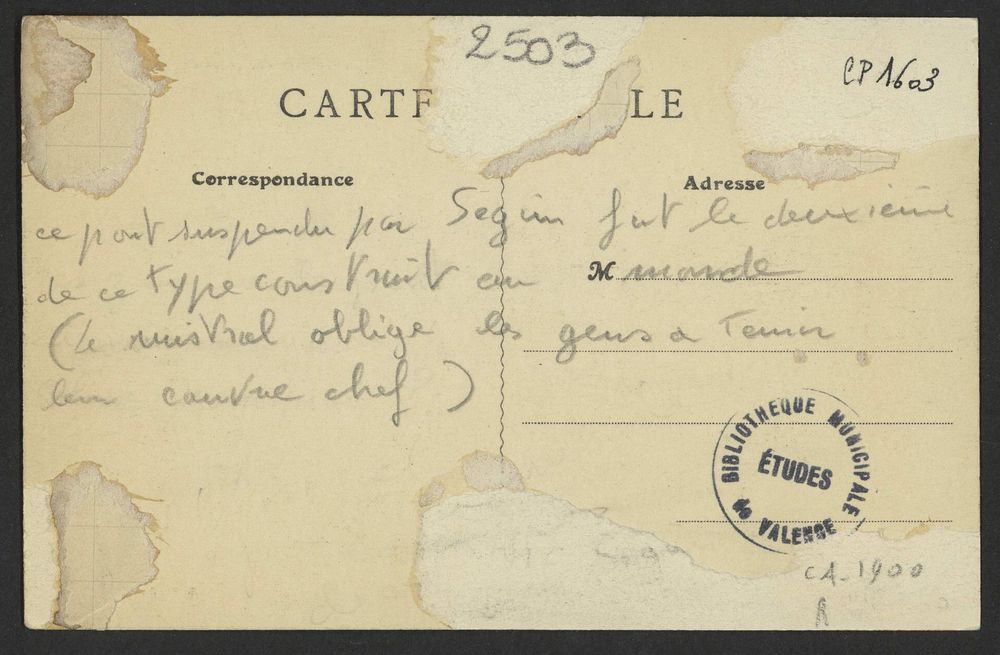 2503
CP 1603
CARTE LE
Correspondance
Adresse
ce pont suspendu par Seguin fut le deuxième
de ce type construit au monde
M
(le mistral oblige les gens a tenir
leur couvre chef)
BIBLIOTHEQUE MUNICIPALE
ÉTUDES
de VALENCE
CA-1900
R